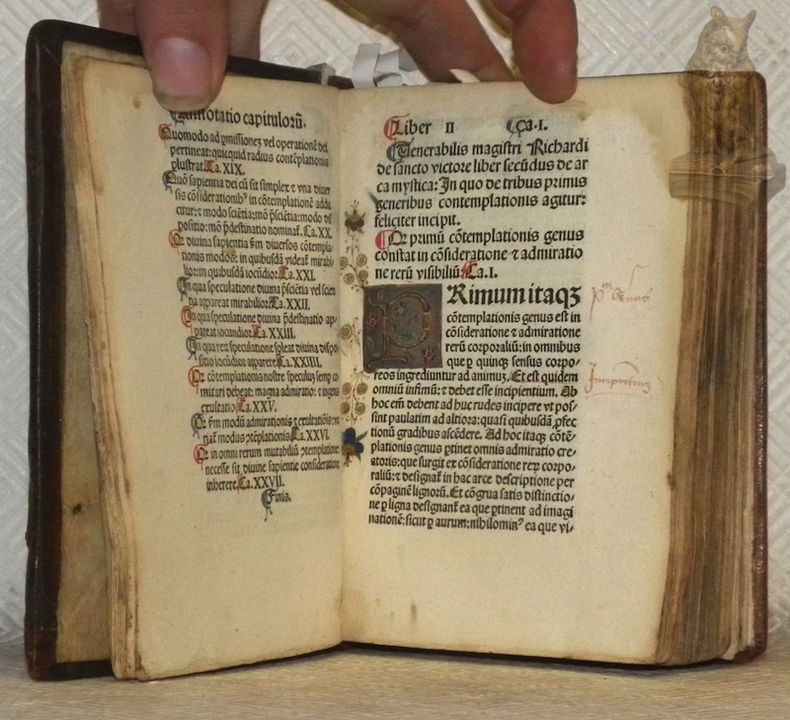 Annotatio capitulorū.
Quomodo ad ꝓmissionez vel operationē dei
pertineat:quicquid radius contēplationis
plustrat.Ca.XIX.
Quō sapientia dei cū sit simplex ⁊ vna diuer
sis cōsiderationibꝰ in cōtemplationē addu
citur:⁊ modo sciētia:mō p̄sciētia:modo dis
positio:mō p̄destinatio nominat̄.Ca.XX.
Qꝫ diuina sapientia fm diuersos cōtempla
tionis modos: in quibusdā videat̄ mirabi
lior:in quibusdā iocūdior.Ca.XXI.
In qua speculatione diuina p̄sciētia vel scien
tia appareat mirabilior.Ca.XXII.
In qua speculatione diuina p̄destinatio ap-
pareat iocundior.Ca.XXIII.
In qua reꝝ speculatione soleat diuina dispo
sitio iocūdior apparere.Ca.XXIIII.
Qꝫ cōtemplationis nostre speculuz semꝑ i
mitari debeat: magna admiratio: ⁊ ingens
exultatio.Ca.XXV.
Qꝫ fm modū admirationis ⁊ exultatiōis:
modus ꝯtēplatiōis.Ca.XXVI.
Qꝫ in omni rerum mutabiliū ꝯtemplatione
necesse sit diuine sapientie consideratione
inherere.Ca.XXVII.
Finis.
Liber II Ca.I.
Uenerabilis magistri Richardi
de sancto victore liber secūdus de ar
ca mystica: In quo de tribus primis
generibus contemplationis agitur:
feliciter incipit.
Qꝫ primū cōtemplationis genus
constat in cōsideratione ⁊ admiratio
ne rerū visibiliū.Ca.I.
PRimum itaqꝫ
cōtemplationis genus est in
cōsideratione ⁊ admiratione
rerū corporaliū:in omnibus
que ꝑ quinqꝫ sensus corpo-
reos ingrediuntur ad animuꝫ. Et est quidem
omniū infimū: ⁊ debet esse incipientium. Ab
hoc em̄ debent ad huc rudes incipere vt pos-
sint paulatim ad altiora: quasi quibusdā ꝓfec
tionū gradibus ascēdere. Ad hoc itaqꝫ cōtē-
plationis genus ꝑtinet omnis admiratio cre-
atoris:que surgit ex cōsideratione reꝝ corpo-
raliū:⁊ designat̄ in hac arce descriptione per
cōpaginē lignorū. Et cōgrua satis distinctio-
ne ꝑ ligna designant̄ ea que ꝑtinent ad imagi
nationē:sicut ꝑ aurum:nihilominꝰ ea que vi-
pm genus
Incipientium